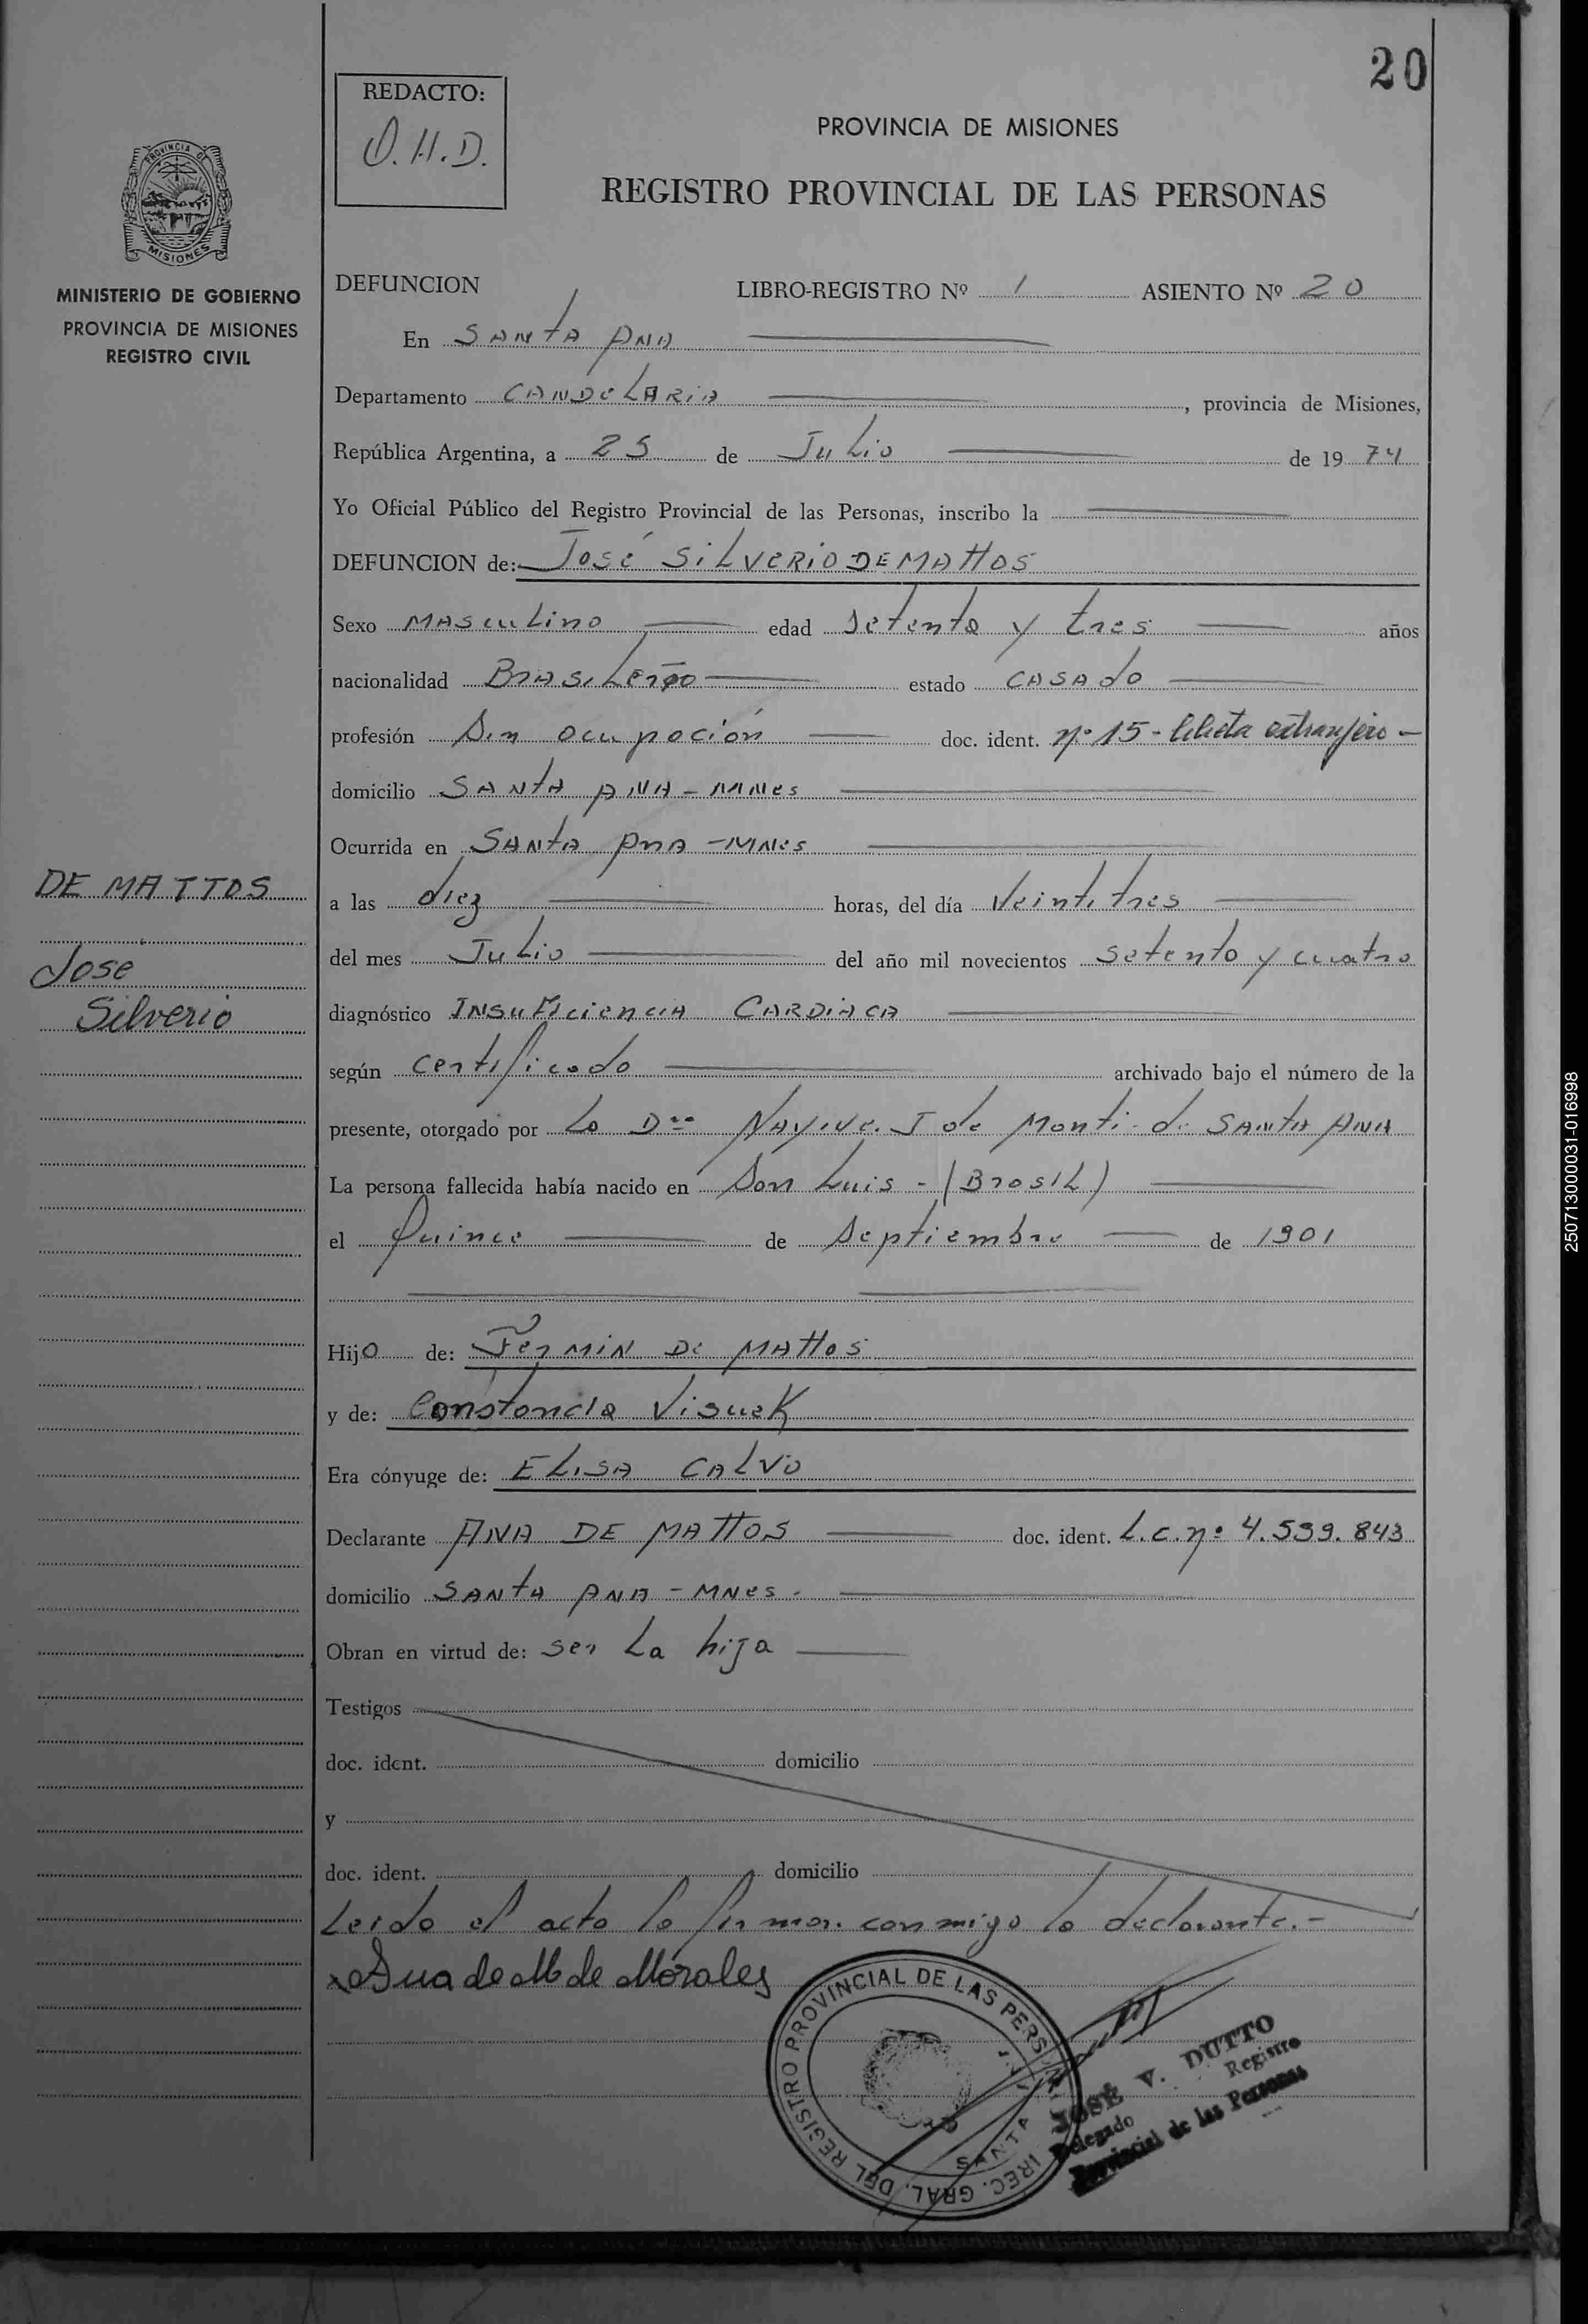 20
REDACTO:
O.H.D.
PROVINCIA DE MISIONES
REGISTRO PROVINCIAL DE LAS PERSONAS
PROVINCIA DE
MISIONES
MINISTERIO DE GOBIERNO
PROVINCIA DE MISIONES
REGISTRO CIVIL
DEFUNCION LIBRO-REGISTRO Nº 1 ASIENTO Nº 20
En SANTA ANA
Departamento CANDELARIA, provincia de Misiones,
República Argentina, a 25 de Julio de 1974
Yo Oficial Público del Registro Provincial de las Personas, inscribo la
DEFUNCION de: José SILVERIO DE MATTOS
Sexo MASCULINO edad setenta y tres años
nacionalidad BRASILEÑO estado CASADO
profesión Sin ocupación doc. ident. nº 15 - libreta extranjero -
domicilio SANTA ANA - MNes
Ocurrida en SANTA ANA - MNes
DE MATTOS
José
Silverio
a las diez horas, del día Veintitres
del mes Julio del año mil novecientos setenta y cuatro
diagnóstico INSUFICIENCIA CARDIACA
según certificado archivado bajo el número de la
presente, otorgado por La Dra J de Monti de SANTA ANA
La persona fallecida había nacido en San Luis - (BRASIL)
el Quince de Septiembre de 1901
Hijo de: FERMIN DE MATTOS
y de: Constancia
Era cónyuge de: ELISA CALVO
Declarante ANA DE MATTOS doc. ident. L.C. nº 4.539.843
domicilio SANTA ANA - MNes.
Obran en virtud de: ser La hija
Testigos
doc. ident. domicilio
y
doc. ident. domicilio
Leido el acta la firma conmigo la declarante.-
Ana de M de Morales
DIREC. GRAL. DEL REGISTRO PROVINCIAL DE LAS PERSONAS
SANTA
JOSÉ V. DUTTO
Delegado Registro
Provincial de las Personas
250713000031-016998